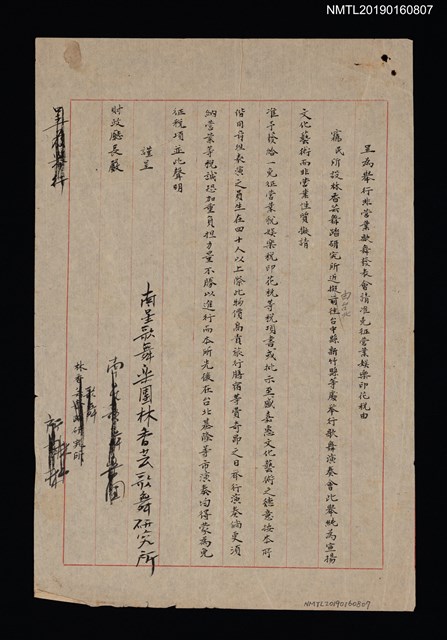 NMTL20190160807
呈為舉行非營業歌舞發表會請准免征營業娛樂印花稅由
竊民所設林香芸舞踏研究所近擬前往台中縣新竹縣等處舉行歌舞演奏會此舉純為宣揚
文化藝術而非營業性質擬請
准予發給一免征營業稅娛樂稅印花稅等稅項書或批示至感嘉惠文化藝術之德意按本所
偕同前往表演之員生在四十人以上際此物價高貴旅行膳宿等費奇昂之日舉行演奏倘更須
納營業等稅誠恐加重負担力量不勝以進行而本所先後在台北基隆等市演奏均得蒙為免
征稅項並此聲明
謹呈
財政廳長嚴
南星歌舞樂團林香芸歌舞研究所
NMTL20190160807